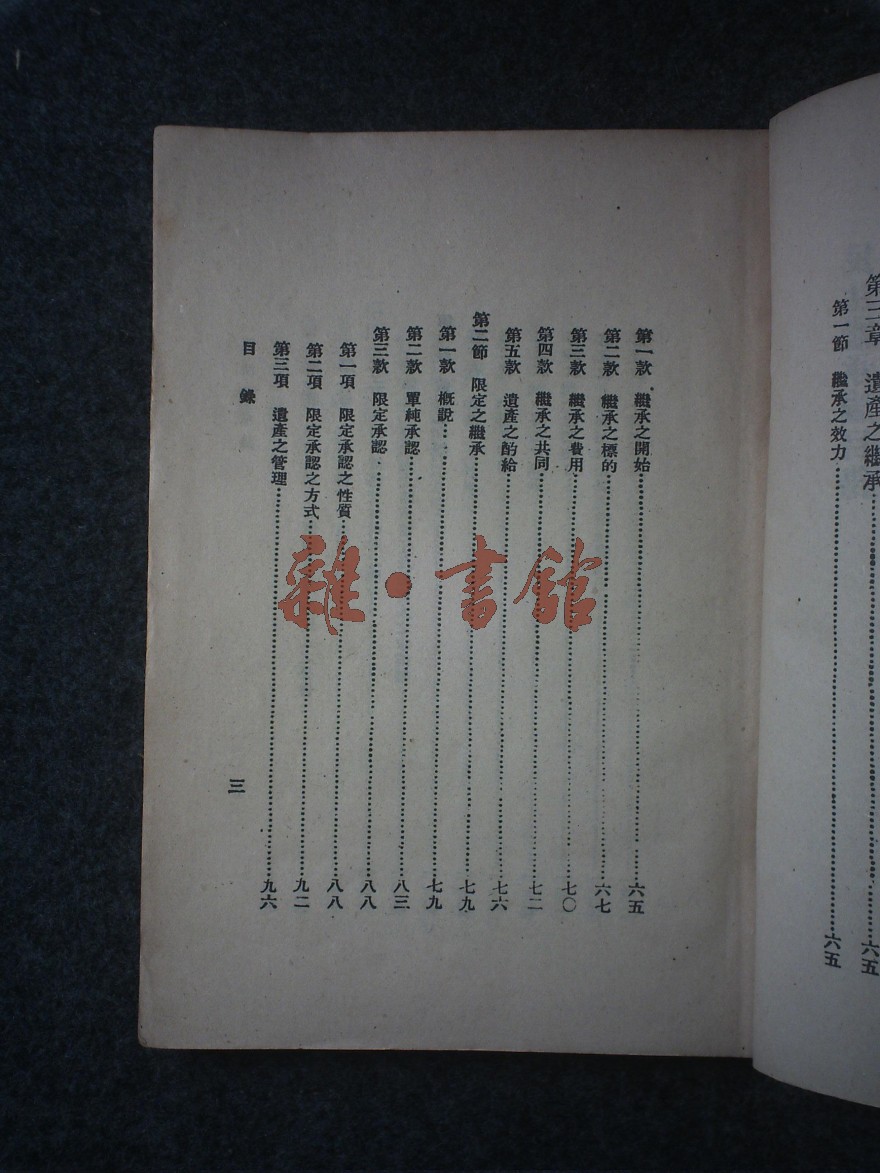 第三章 遺產之繼承……六五
第一節 繼承之效力……六五
第一款 繼承之開始……六五
第二款 繼承之標的……六七
第三款 繼承之費用……七〇
第四款 繼承之共同……七二
第五款 遺產之酌給……七六
第二節 限定之繼承……七九
第一款 概說……七九
第二款 單純承認……八三
第三款 限定承認……八八
第一項 限定承認之性質……八八
第二項 限定承認之方式……九二
第三項 遺產之管理……九六
目錄 三
雜·書館